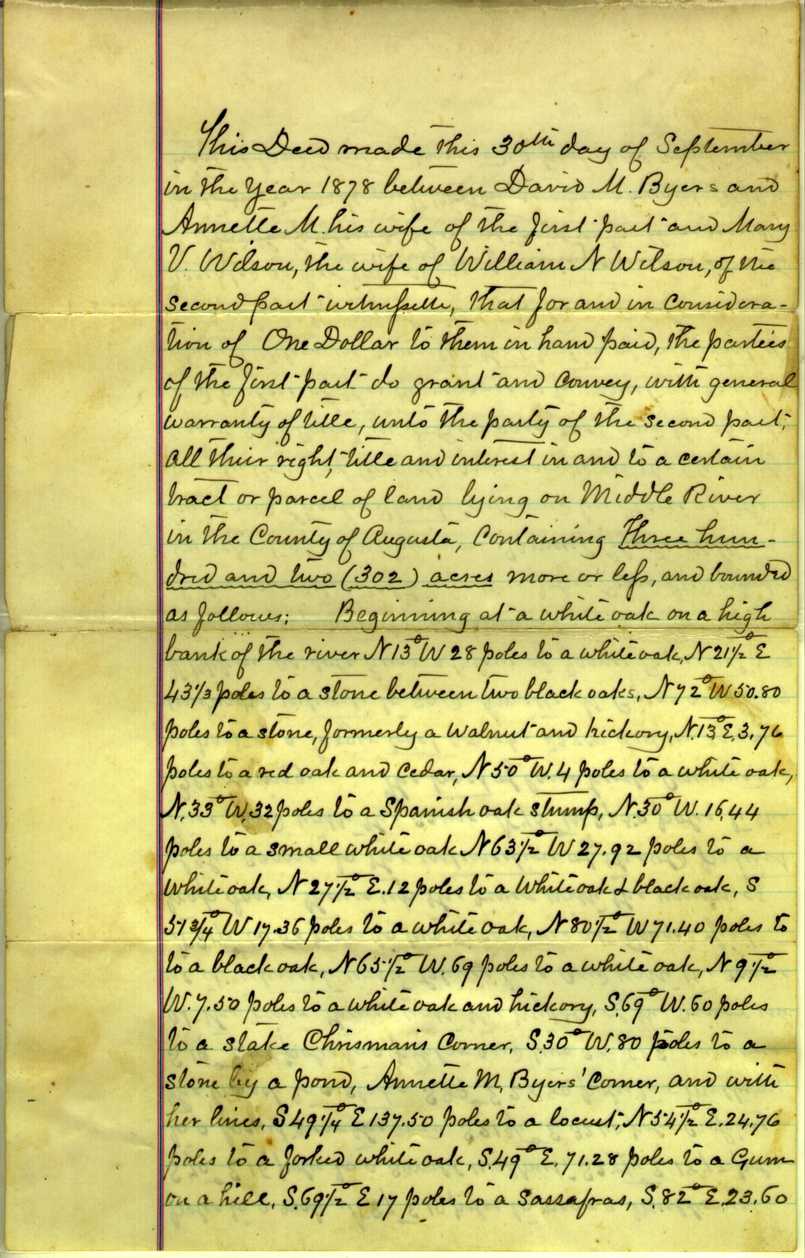 This Deed made this 30th day of September
in the Year 1878 between David M. Byers and
Annette M. his wife of the first part and Mary
V. Wilson, the wife of William N Wilson, of the
second part witnesseth, that for and in Considera-
tion of One Dollar to them in hand paid, the parties
of the first part do grant and Convey, with general
warranty of title, unto the party of the second part,
all their right, title and interest in and to a certain
tract or parcel of land lying on Middle River
in the County of Augusta, Containing Three hun-
dred and two (302) acres more or less, and bounded
as follows; Beginning at a white oak on a high
bank of the river N 13° W 28 poles to a white oak, N 21 1/2° E
43 1/3 poles to a stone between two black oaks, N 72° W 50.80
poles to a stone, formerly a walnut and hickory, N. 13° E. 3.76
poles to a red oak and Cedar, N 50° W. 4 poles to a white oak,
N. 33° W. 32 poles to a Spanish oak stump, N. 30° W. 16.44
poles to a small white oak N 63 1/2° W 27.92 poles to a
white oak, N 27 1/2° E. 12 poles to a white oak & black oak, S
51 3/4° W 17.36 poles to a white oak, N 80 1/2° W 71.40 poles to
to a black oak, N 65 1/2° W. 69 poles to a white oak, N 9 1/2°
W. 7.50 poles to a white oak and hickory, S. 69° W. 60 poles
to a stake Chrisman's Corner, S. 30° W. 80 poles to a
stone by a pond, Annette M, Byers' Corner, and with
her lines, S 49 1/4° E 137.50 poles to a locust, N 54 1/2° E. 24.76
poles to a forked white oak, S. 49° E. 71.28 poles to a Gum
on a hill, S. 69 1/2° E 17 poles to a Sassafras, S. 82° E. 23.60